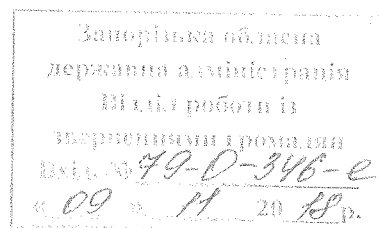 Запорізька обласна
державна адміністрація
Відділ роботи із
зверненнями громадян
Вхід. № 79-О-346-е
« 09 » 11 20 18 р.